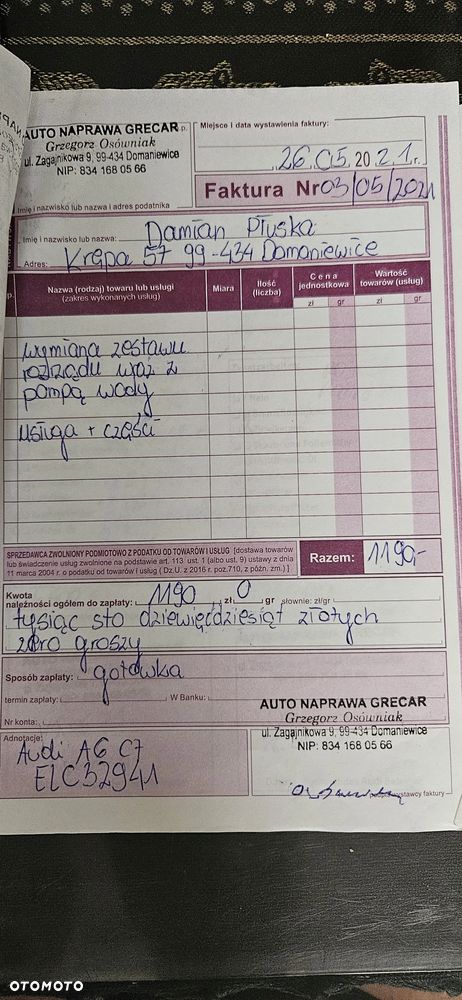 AUTO NAPRAWA GRECAR
Grzegorz Osówniak
ul. Zagajnikowa 9, 99-434 Domaniewice
NIP: 834 168 05 66
Imię i nazwisko lub nazwa i adres podatnika
Miejsce i data wystawienia faktury:
26.05.2021r.
Faktura Nr 03/05/2021
Imię i nazwisko lub nazwa: Damian Płuska
Adres: Krępa 57 99-434 Domaniewice
Nazwa (rodzaj) towaru lub usługi
(zakres wykonanych usług)
Miara
Ilość
(liczba)
Cena
jednostkowa
zł gr
Wartość
towarów (usług)
zł gr
wymiana zestawu
rozrządu wraz z
pompą wody
usługa + części
SPRZEDAWCA ZWOLNIONY PODMIOTOWO Z PODATKU OD TOWARÓW I USŁUG [dostawa towarów
lub świadczenie usług zwolnione na podstawie art. 113 ust. 1 (albo ust. 9) ustawy z dnia
11 marca 2004 r. o podatku od towarów i usług ( Dz.U. z 2016 r. poz.710, z późn, zm.) ]
Razem: 1190,-
Kwota
należności ogółem do zapłaty: 1190 zł 0 gr słownie: zł/gr
tysiąc sto dziewięćdziesiąt złotych
zero groszy
Sposób zapłaty: gotówka
termin zapłaty: W Banku:
Nr konta:
AUTO NAPRAWA GRECAR
Grzegorz Osówniak
ul. Zagajnikowa 9, 99-434 Domaniewice
NIP: 834 168 05 66
Adnotacje:
Audi A6 C7
ELC32941
wystawcy faktury
OTOMOTO